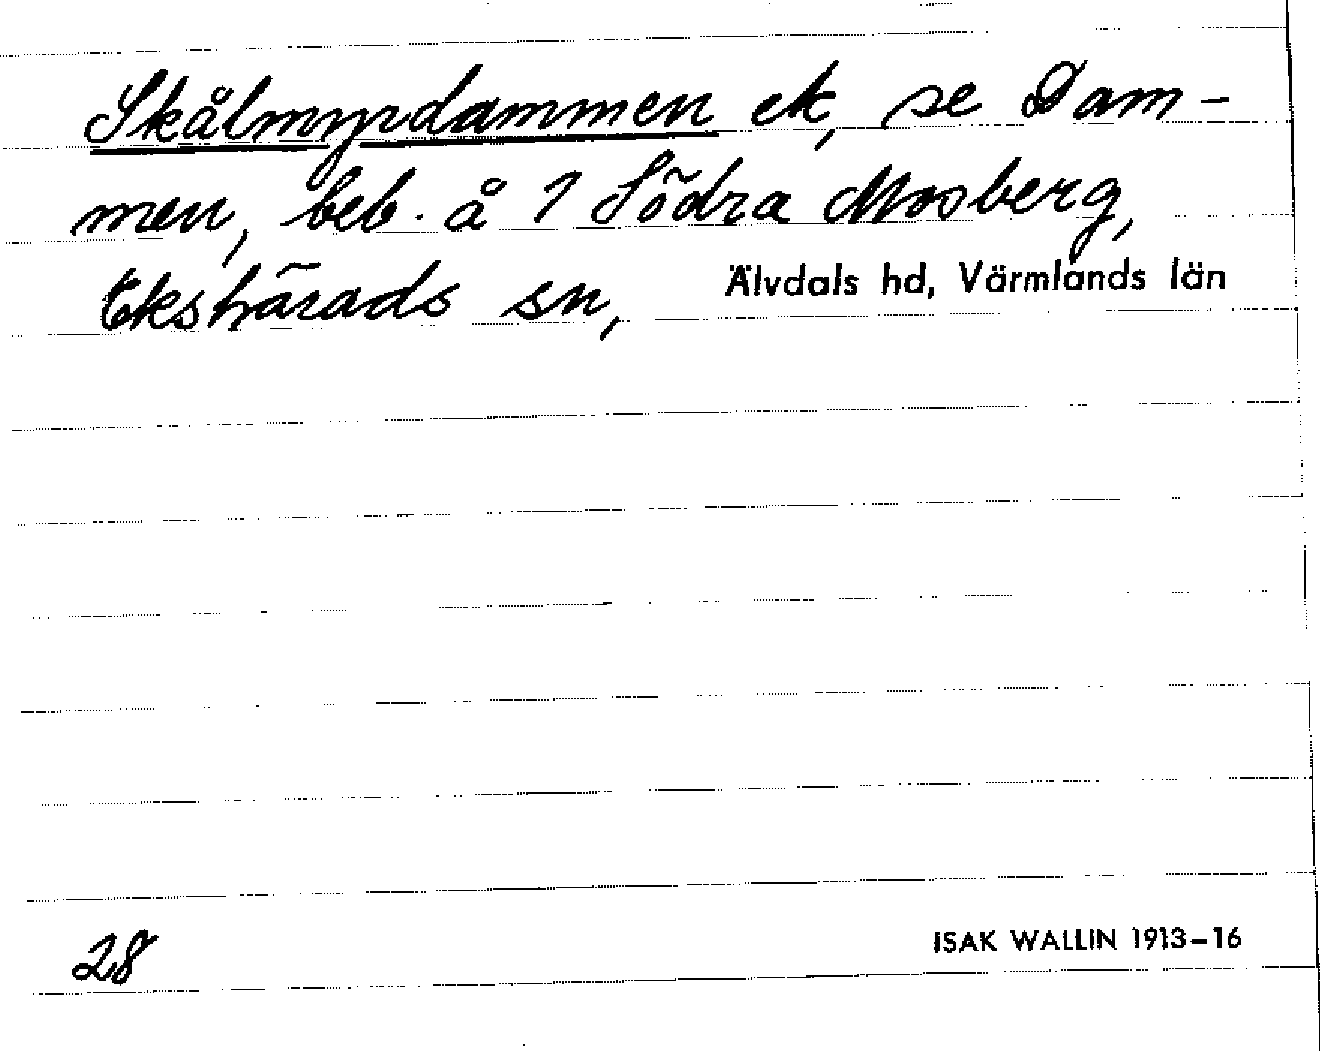 Skålmyrdammen ek, se Dam-
men, beb. å 1 Södra Mosberg,
Ekshärads sn, Älvdals hd, Värmlands län
28 ISAK WALLIN 1913-16